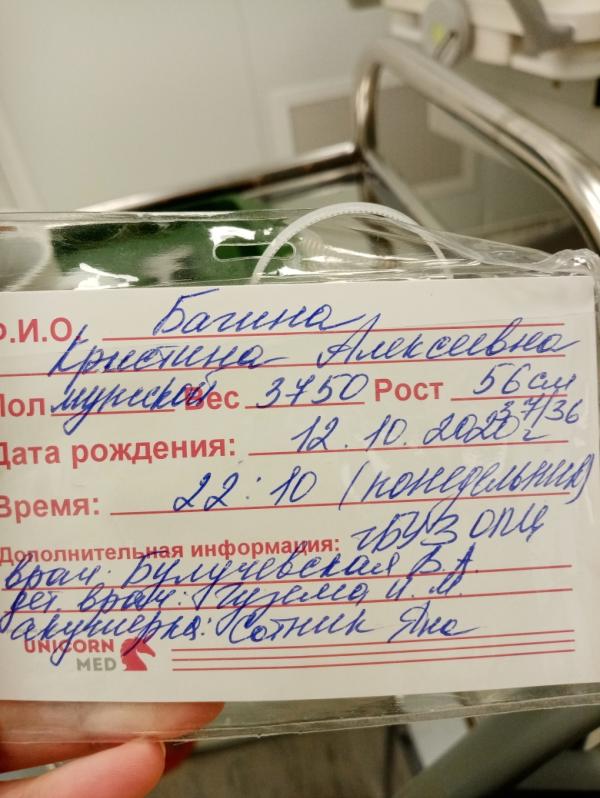 Ф.И.О. Багина
Кристина Алексеевна
Пол мужской Вес 3750 Рост 56 см
37/36
Дата рождения: 12.10.2020 г
Время: 22:10 (понедельник)
Дополнительная информация: ГБУЗ ОПЦ
врач: Булучевская В.А.
дет. врач: Гузема И.М.
акушерка: Сотник Яна
UNICORN
MED